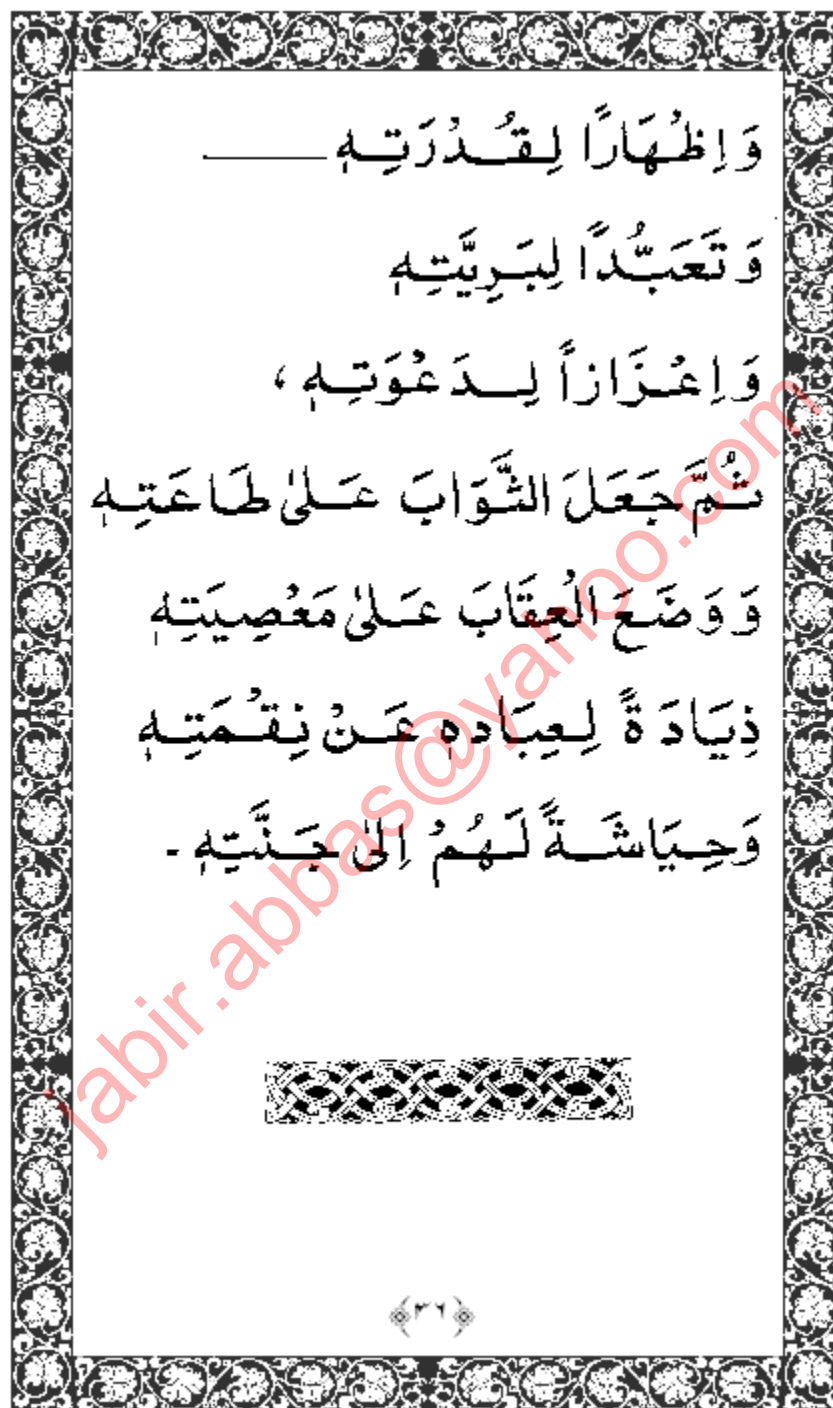 وَ اِظْهَارًا لِقُدْرَتِهٖ ———
وَ تَعَبُّدًا لِبَرِيَّتِهٖ
وَ اِعْزَازاً لِدَعْوَتِهٖ ،
ثُمَّ جَعَلَ الثَّوَابَ عَلىٰ طَاعَتِهٖ
وَ وَضَعَ الْعِقَابَ عَلىٰ مَعْصِيَتِهٖ
ذِيَادَةً لِعِبَادهٖ عَنْ نِقْمَتِهٖ
وَحِيَاشَةً لَهُمْ اِلىٰ جَنَّتِهٖ ۔
jabir.abbas@yahoo.com